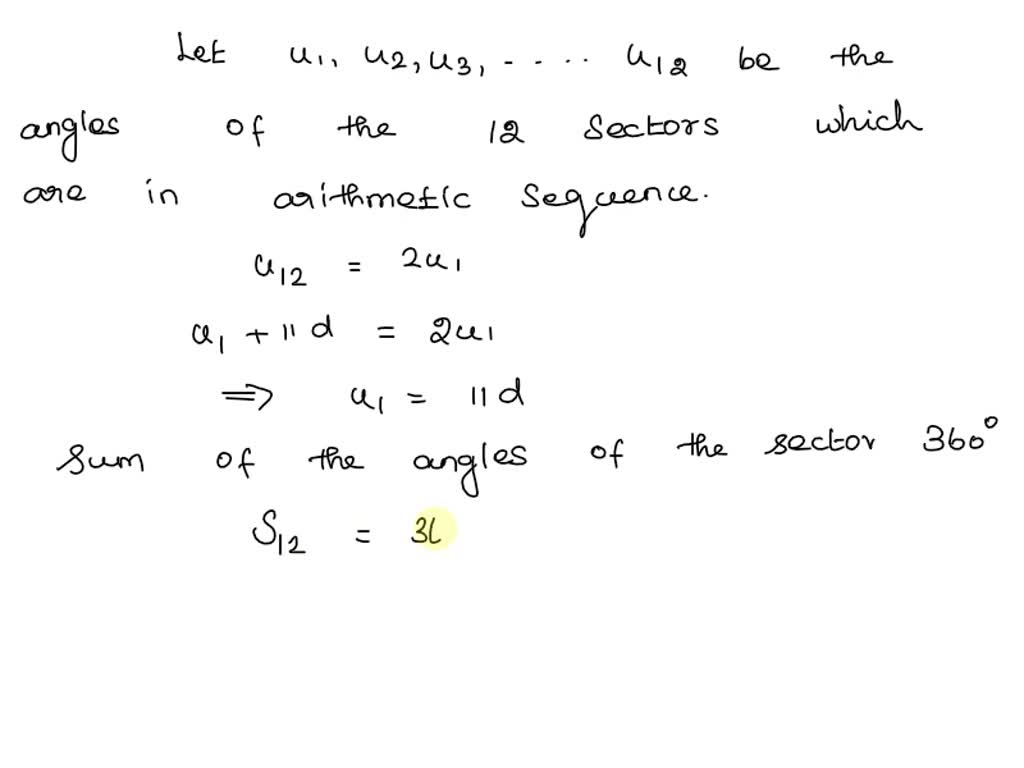 Let u1, u2, u3, ..... u12 be the
angles of the 12 sectors which
are in arithmetic sequence.
u12 = 2u1
u1 + 11d = 2u1
⇒ u1 = 11d
Sum of the angles of the sector 360°
S12 = 36